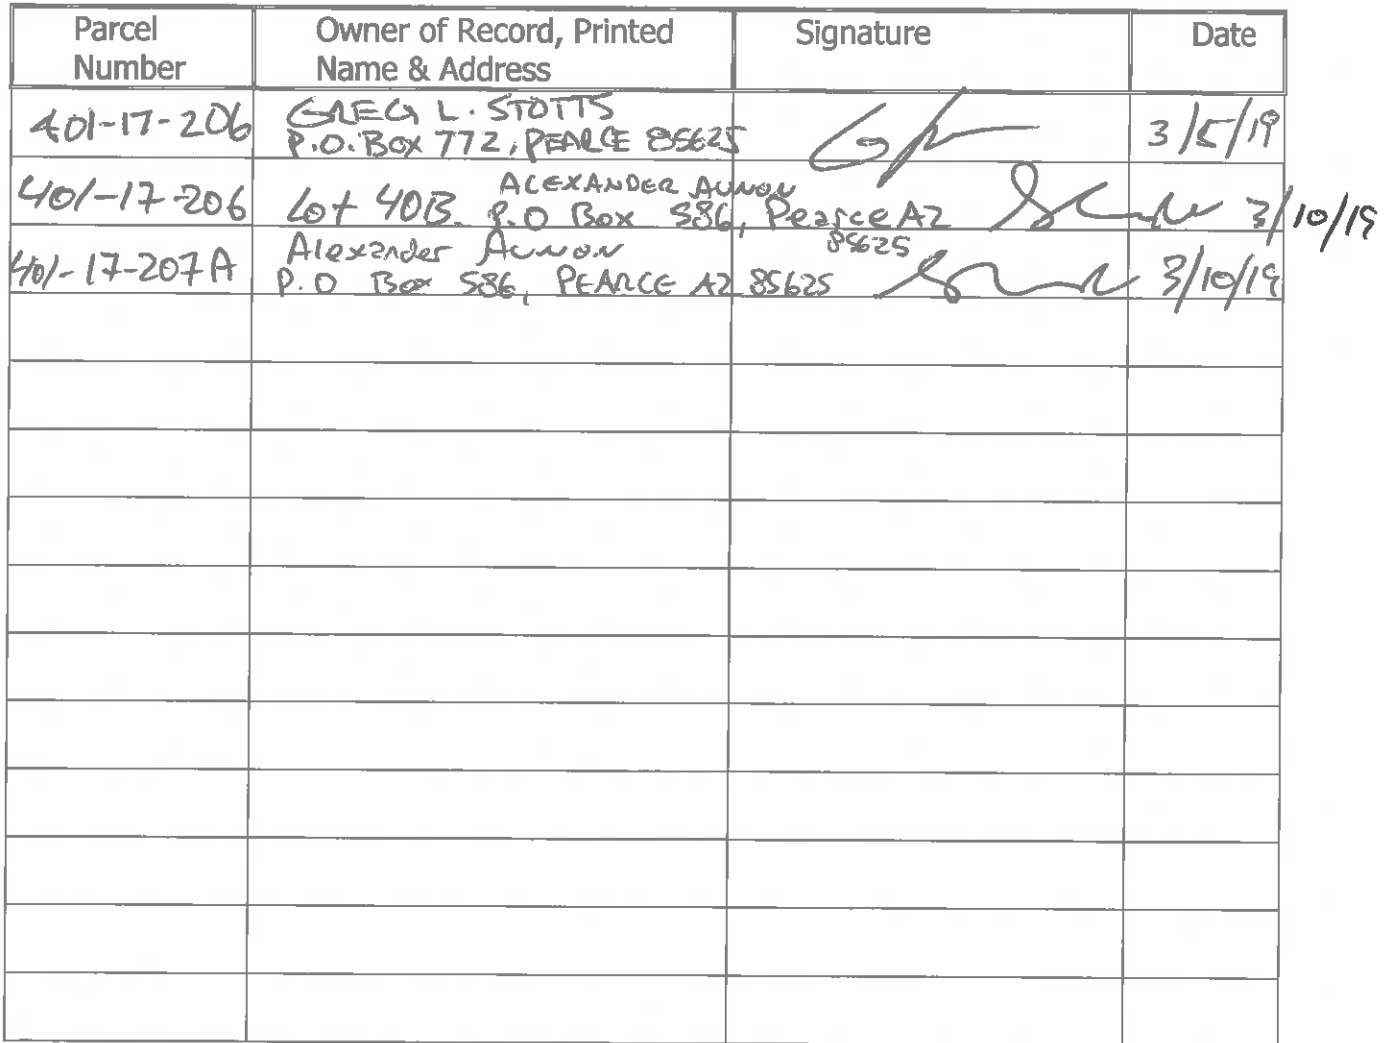 Parcel Number
Owner of Record, Printed Name & Address
Signature
Date
401-17-206
GREG L. STOTTS
P.O. Box 772, PEARCE 85625
3/5/19
401-17-206
ALEXANDER AUNON
Lot 40B. P.O Box 586, Pearce AZ
85625
3/10/19
401-17-207A
Alexander Aunon
P.O Box 586, PEARCE AZ 85625
3/10/19